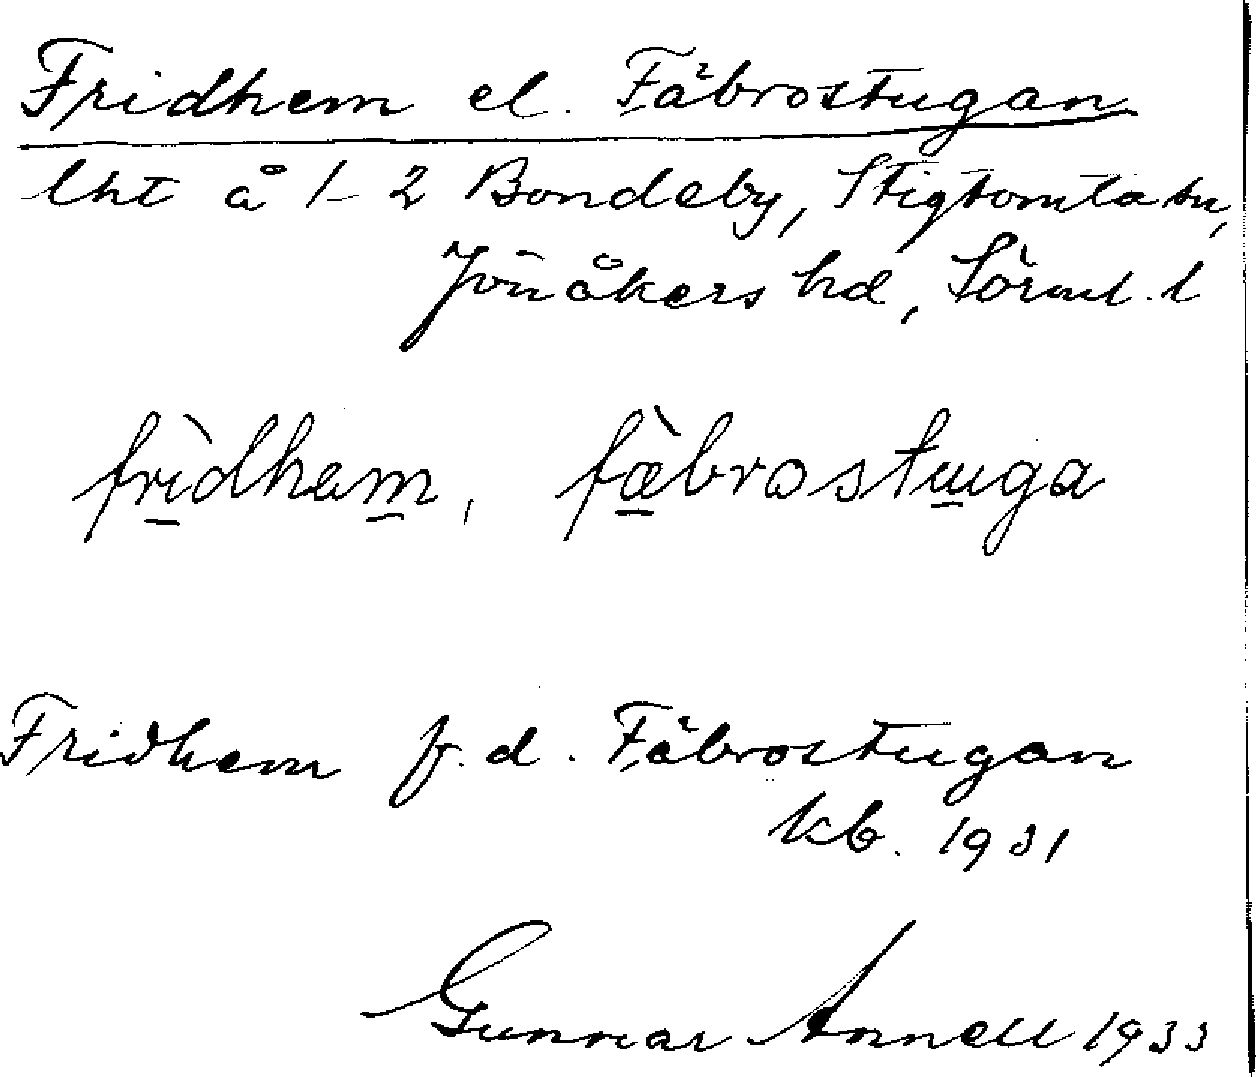 Fridhem el. Fäbrostugan
lht å 1–2 Bondeby, Stigtomta sn,
Jönåkers hd, Sörml. l
frìdhem, fæ̀brostuga
Fridhem f.d. Fäbrostugan
kb. 1931
Gunnar Annell 1933